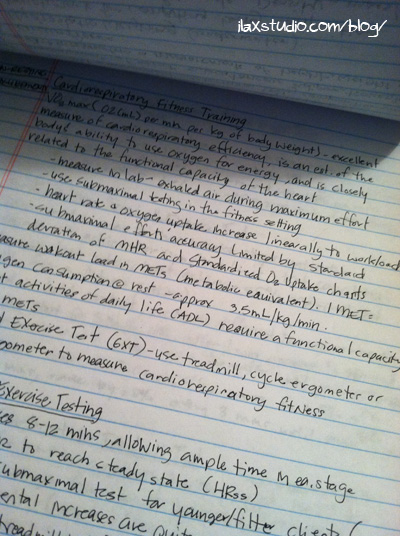 ilaxstudio.com/blog/
Cardiorespiratory Fitness Training
VO2 max (O2 (mL) per min per kg of body weight) - excellent
measure of cardiorespiratory efficiency, is an est. of the
body's ability to use oxygen for energy, and is closely
related to the functional capacity of the heart
- measure in lab - exhaled air during maximum effort
- use submaximal testing in the fitness setting
- heart rate & oxygen uptake increase linearally to workload
- submaximal efforts accuracy limited by standard
deviation of MHR and standardized O2 uptake charts
measure workout load in METs (metabolic equivalent). 1 MET =
gen consumption @ rest - approx 3.5mL/kg/min.
t activities of daily life (ADL) require a functional capacity
METs
Exercise Test (GXT) - use treadmill, cycle ergometer or
ometer to measure cardiorespiratory fitness
Exercise Testing
8-12 mins, allowing ample time in ea. stage
to reach steady state (HRss)
submaximal test for younger/fitter clients (
ental increases are quite
treadmill